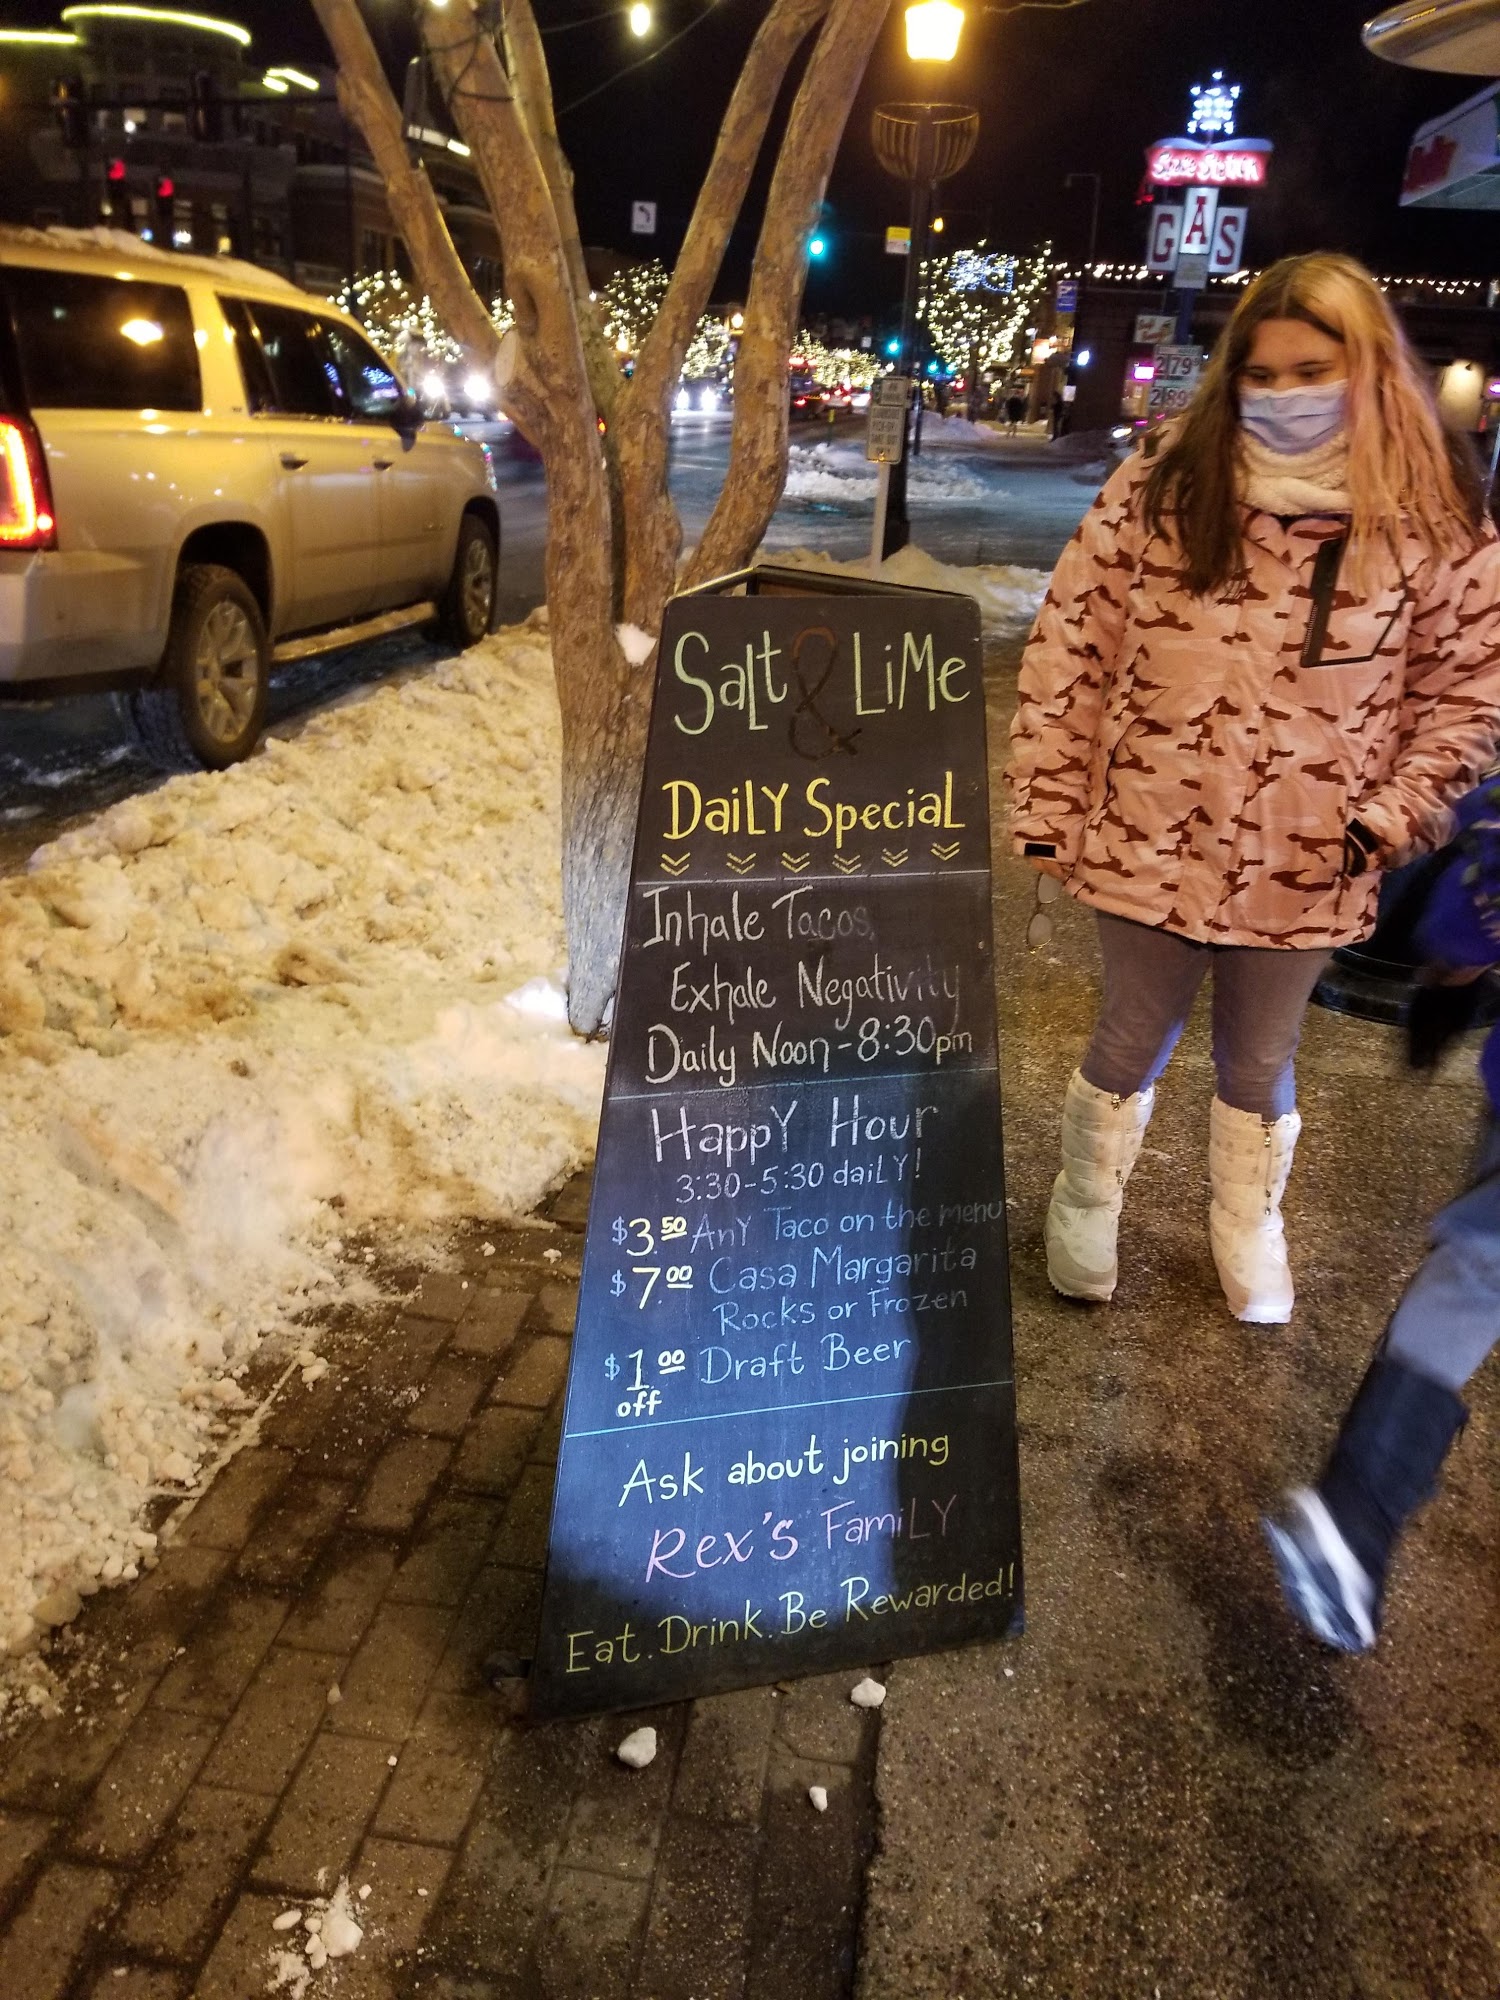 GAS
2.79
2.89
Salt & Lime
Daily Special
Inhale Tacos,
Exhale Negativity
Daily Noon - 8:30pm
Happy Hour
3:30-5:30 daily!
$3.50 Any Taco on the menu
$7.00 Casa Margarita
Rocks or Frozen
$1.00 Draft Beer
off
Ask about joining
Rex's Family
Eat. Drink. Be Rewarded!